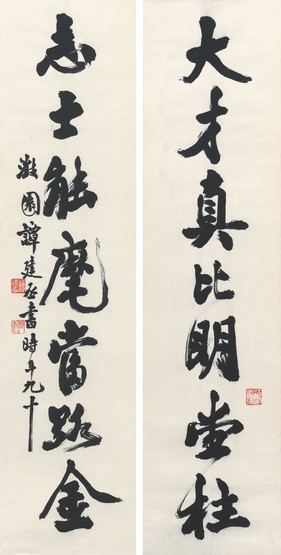 大才真比明堂柱
志士能麾當路金
澂園譚建丞書時年九十